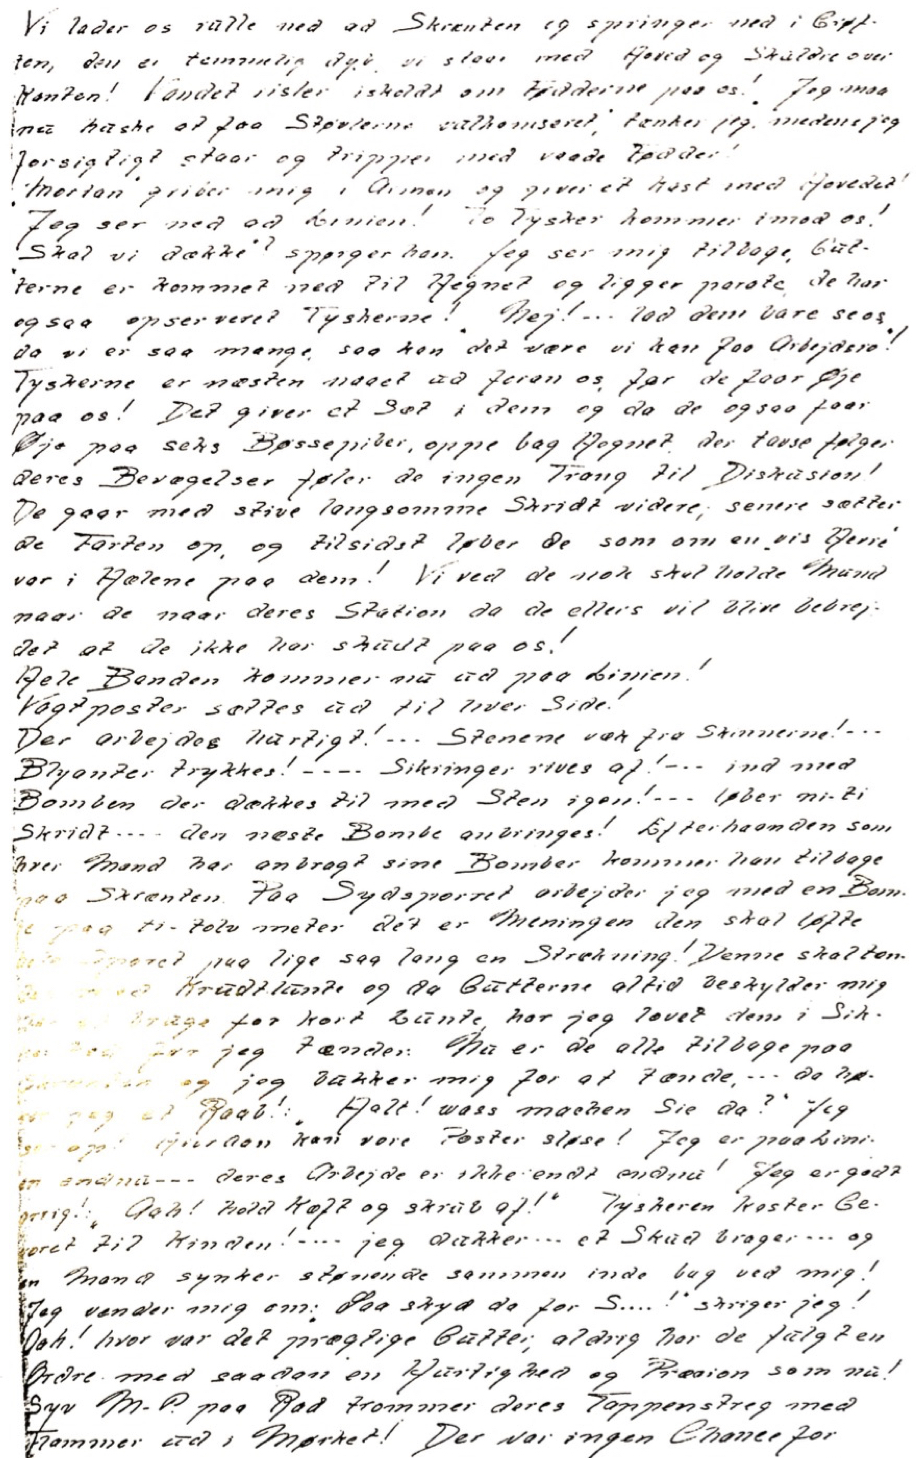 Vi lader os rulle ned ad Skrænten og springer ned i Grøf-
ten, den er temmelig dyb, vi staar med Hoved og Skuldre over
Kanten! Vandet risler iskoldt om Fødderne paa os! Jeg maa
nu huske at faa Støvlerne vulkaniseret, tænker jeg, medens jeg
forsigtigt staar og tripper med vaade Fødder!
"Morian" griber mig i Armen og giver et Kast med Hovedet!
Jeg ser ned ad Linien! To Tysker kommer imod os!
"Skal vi dække?" spørger han. Jeg ser mig tilbage, Gut-
terne er kommet ned til Hegnet og ligger parate, de har
ogsaa opserveret Tyskerne! "Nej!--- lad dem bare se os,
da vi er saa mange, saa kan det være vi kan faa Arbejdsro!"
Tyskerne er næsten naaet ud foran os, før de faar Øje
paa os! Det giver et Sæt i dem og da de ogsaa faar
Øje paa seks Bøssepiber, oppe bag Hegnet, der tavse følger
deres Bevægelser føler de ingen Trang til Diskusion!
De gaar med stive langsomme Skridt videre, senere sætter
de Farten op, og tilsidst løber de som om en "vis Herre"
var i Hælene paa dem! Vi ved de nok skal holde Mund
naar de naar deres Station da de ellers vil blive bebrej-
det at de ikke har skudt paa os!
Hele Banden kommer nu ud paa Linien!
Vagtposter sættes ud til hver Side!
Der arbejdes hurtigt!--- Stenene væk fra Skinnerne!---
Blyanter trykkes!---- Sikringer rives af!--- ind med
Bomben der dækkes til med Sten igen!--- løber ni-ti
Skridt---- den næste Bombe anbringes! Efterhaanden som
hver Mand har anbragt sine Bomber kommer han tilbage
paa Skrænten. Paa Sydsporret arbejder jeg med en Bom-
be paa ti-tolv meter det er Meningen den skal løfte
Sporet paa lige saa lang en Strækning! Denne skal tæn-
des med Krudtlunte og da Gutterne altid beskylder mig
for at bruge for kort Lunte, har jeg lovet dem i Sik-
jeg tænder. Nu er de alle tilbage paa
og jeg bukker mig for at tænde,--- da hø-
rer jeg et Raab!: "Halt! wass machen Sie da?" Jeg
ser op! Hvordan kan vore Poster sløse! Jeg er paa Lini-
en endnu--- deres Arbejde er ikke endt endnu! Jeg er godt
"Aah! hold Kæft og skrub af!" Tyskeren kaster Ge-
været til Kinden!---- jeg dukker--- et Skud brager--- og
en Mand synker stønende sammen inde bag ved mig!
Jeg vender mig om: "Saa skyd da for S....!" skriger jeg!
Ooh! hvor var det prægtige Gutter, aldrig har de fulgt en
Ordre med saadan en Hurtighed og Præcion som nu!
Syv M-P. paa Rad trommer deres Tappenstreg med
Flammer ud i Mørket! Der var ingen Chance for